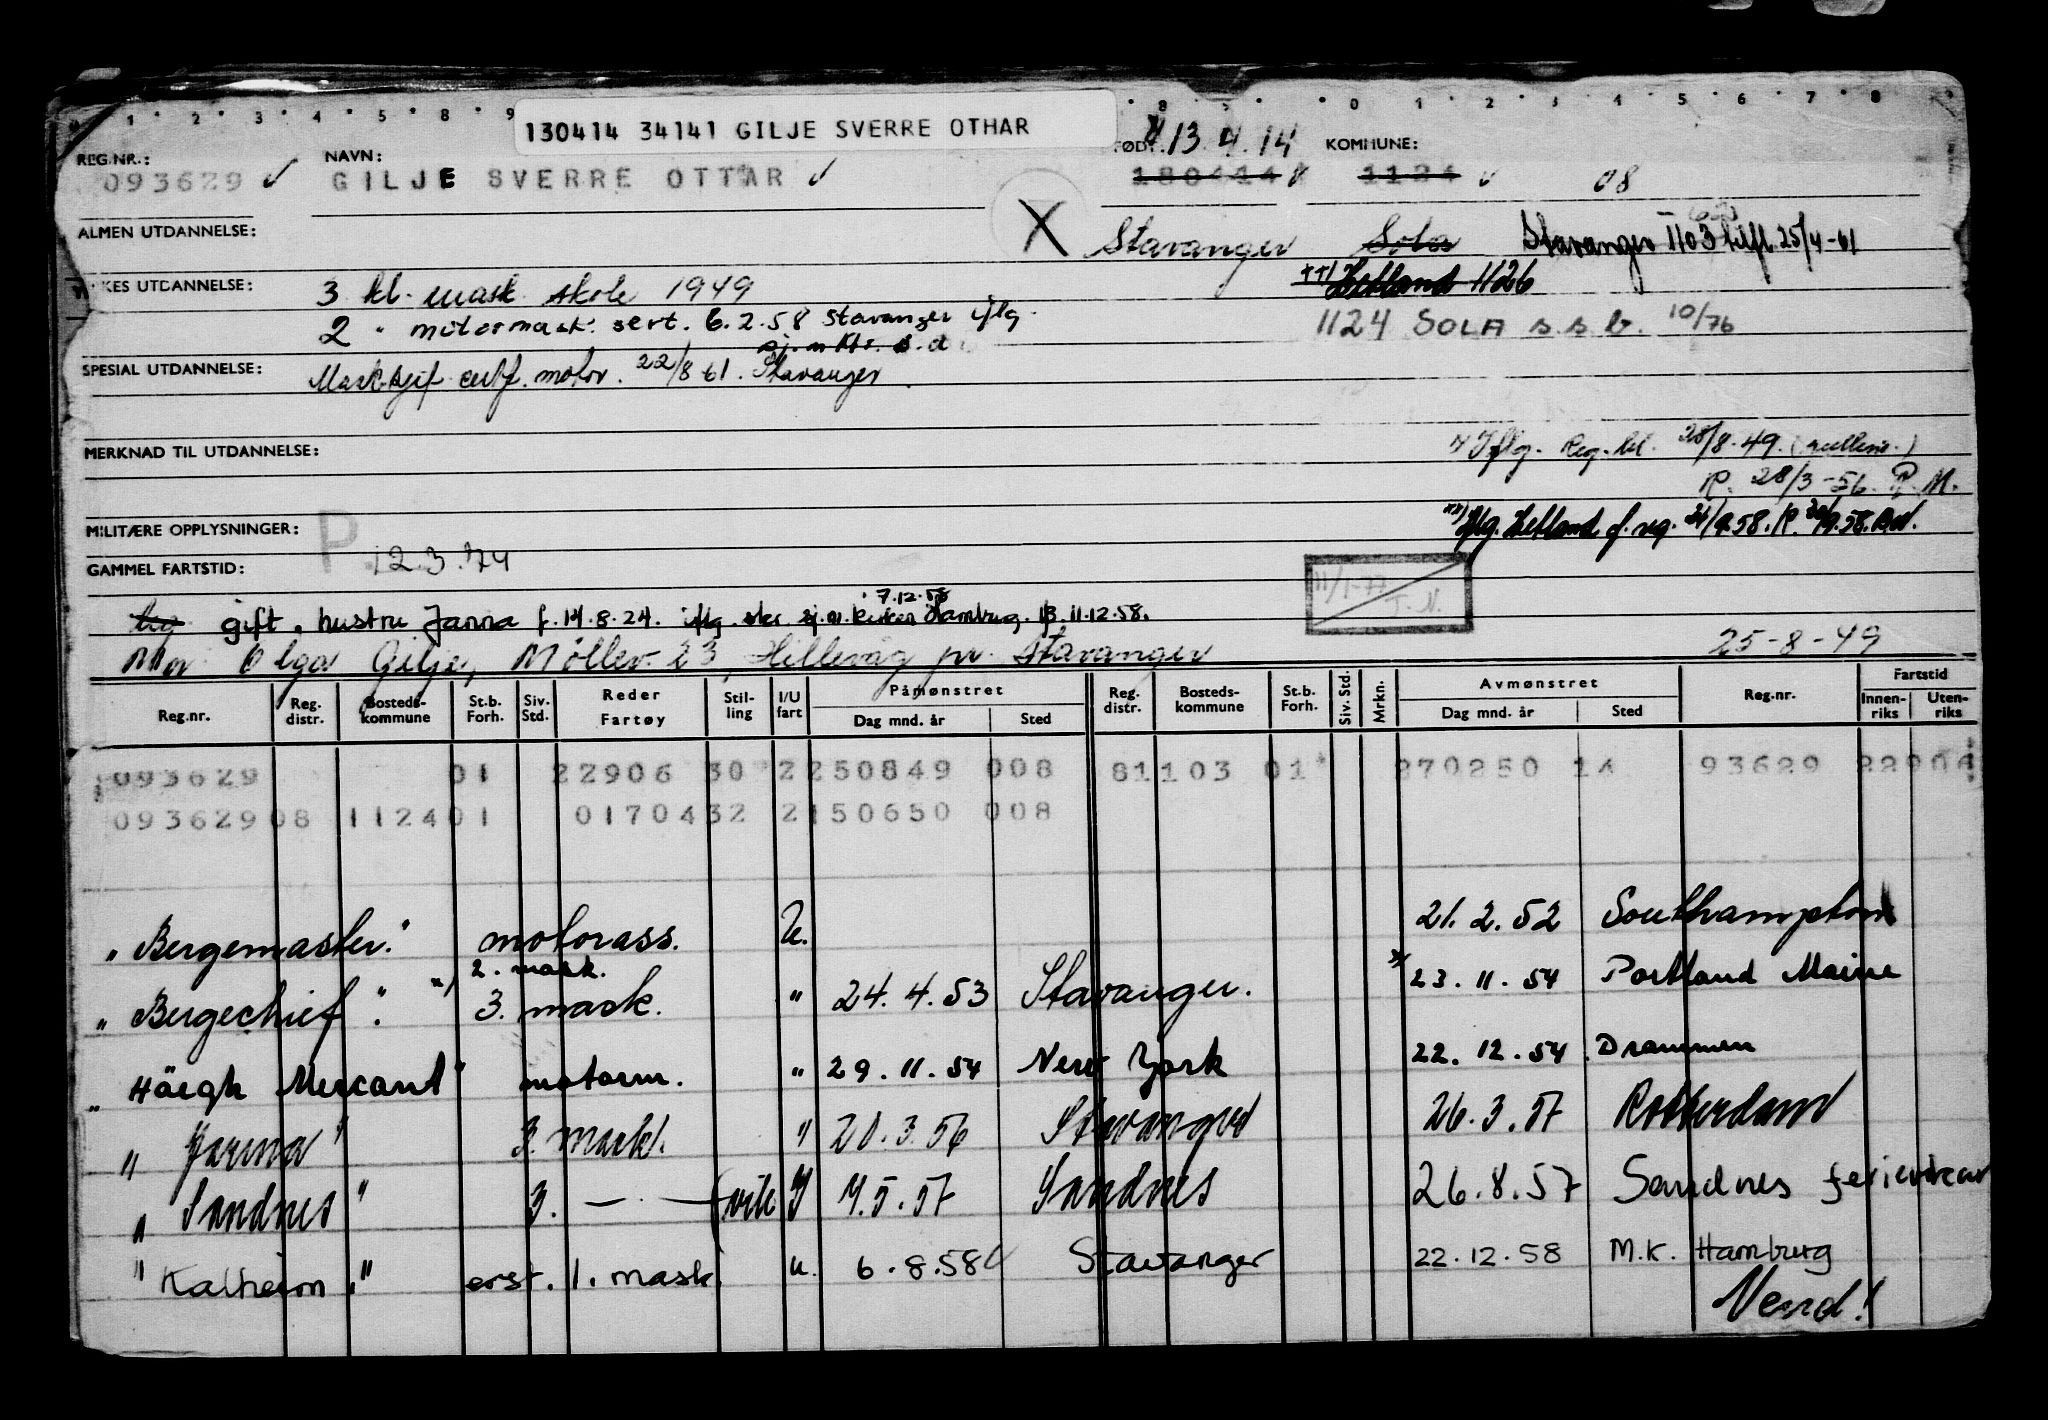 130414 34141 GILJE SVERRE OTHAR
REG.NR.: NAVN: FØDT: 13.4.14 KOMMUNE:
093629 ✓ GILJE SVERRE OTTAR ✓ 180414 1124 ✓ 08
ALMEN UTDANNELSE: X Stavanger Sola Stavanger 1103 tilfl. 25/4-61
YRKES UTDANNELSE: 3 kl. mask. skole 1949 Hetland 1126
2 " motormask. sert. 6.2.58 Stavanger iflg. 1124 SOLA s.s.b. 10/76
SPESIAL UTDANNELSE: motor. 22/8 61. Stavanger
MERKNAD TIL UTDANNELSE: Iflg. Reg. bl. 28/8-49.
R. 28/3-56. P.M.
MILITÆRE OPPLYSNINGER: P iflg. Hetland f. reg.
GAMMEL FARTSTID: 12.3.74
11/1-77
7.12.58
gift. hustru Janna f. 14.8.24. iflg. Hamburg. 11.12.58.
Mor Olga Gilje, Møllev. 23, Hillevåg pr. Stavanger 25-8-49
Reg.nr. Reg. distr. Bosteds-kommune St.b. Forh. Siv. Std. Reder Fartøy Stil-ling I/U fart Påmønstret Dag mnd. år Sted Reg. distr. Bosteds-kommune St.b. Forh. Siv. Std. Mrkn. Avmønstret Dag mnd. år Sted Reg.nr. Fartstid Innen-riks Uten-riks
093629 01 22906 30 2 250849 008 81103 01 270250 14 93629 22906
093629 08 1124 01 01704 32 2 150650 008
"Bergemaster." motorass. U. 21.2.52 Southampton
2. mask.
"Bergechief". 3. mask. " 24.4.53 Stavanger. 23.11.54 Portland Maine
"Höegh Mercant" motorm. " 29.11.54 New York 22.12.54 Drammen
"Jarma" 3. mask. " 20.3.56 Stavanger 26.3.57 Rotterdam
"Sandnes" 3. — (vik I 7.5.57 Sandnes 26.8.57 Sandnes ferievikar
"Kalheim" erst. 1. mask. u. 6.8.58 Stavanger 22.12.58 M.K. Hamburg
Vend!